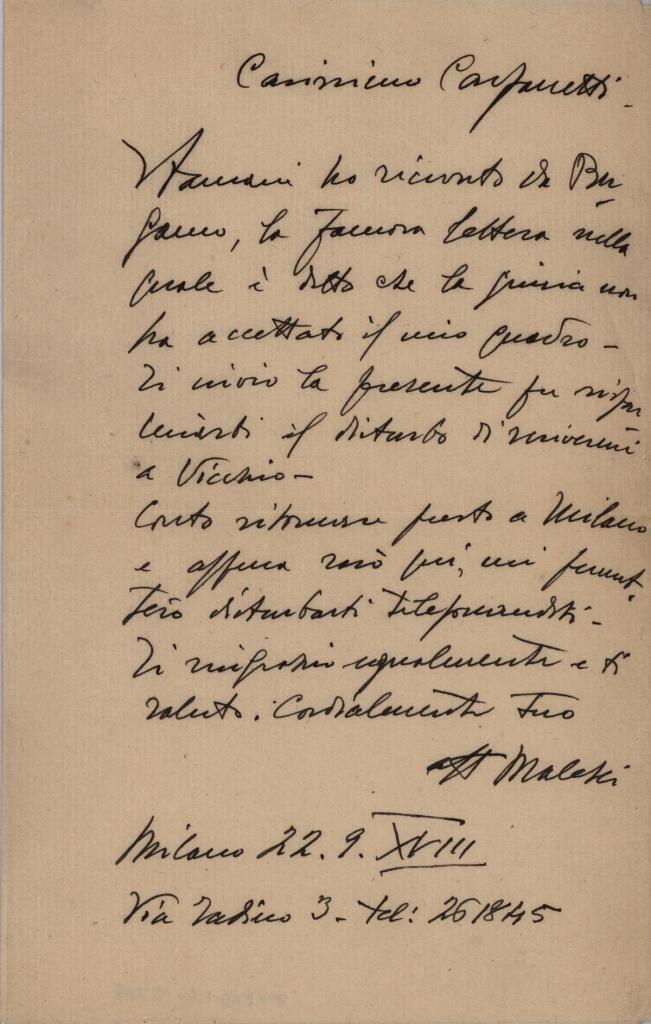 Carissimo Carpanetti.
Stamani ho ricevuto da Ber
gamo, la famosa lettera nella
quale è detto che la giuria non
ha accettato il mio quadro –
Ti invio la presente per rispar
miarti il disturbo di scrivermi
a Vicchio –
Conto ritornare presto a Milano
e appena sarò qui, mi permet
terò disturbarti telefonandoti –
Ti ringrazio ugualmente e ti
saluto. Cordialmente tuo
Milano 22. 9. XVIII
Via Tadino 3 – tel: 261845